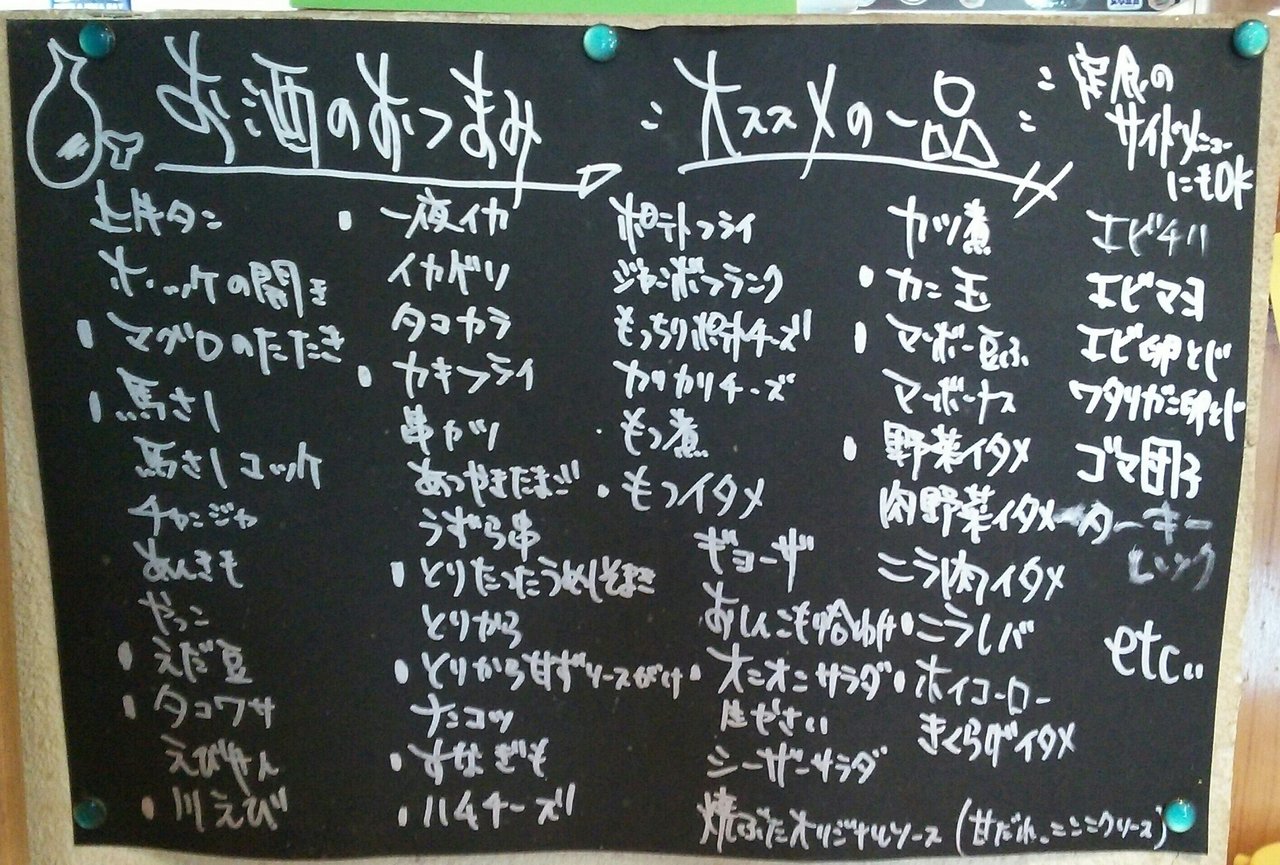 お酒のおつまみ
オススメの一品
定食の
サイドメニュー
にもOK
上牛タン
ホッケの開き
マグロのたたき
馬さし
馬さしユッケ
チャンジャ
あんきも
やっこ
えだ豆
タコワサ
えびせん
川えび
一夜イカ
イカゲソ
タコカラ
カキフライ
串カツ
あつやきたまご
うずら串
とりたつたうめしそまき
とりから
とりから甘ずソースがけ
ナンコツ
すなぎも
ハムチーズ
ポテトフライ
ジャンボフランク
もっちりポテトチーズ
カリカリチーズ
もつ煮
もつイタメ
ギョーザ
おしんこもり合わせ
オニオンサラダ
生やさい
シーザーサラダ
焼ぶたオリジナルソース (甘だれ、ニンニクソース)
カツ煮
カニ玉
マーボー豆ふ
マーボーナス
野菜イタメ
肉野菜イタメ
ニラ肉イタメ
ニラレバ
ホイコーロー
きくらげイタメ
エビチリ
エビマヨ
エビ卵とじ
ワタリガニ卵とじ
ゴマ団子
ターキー
etc...